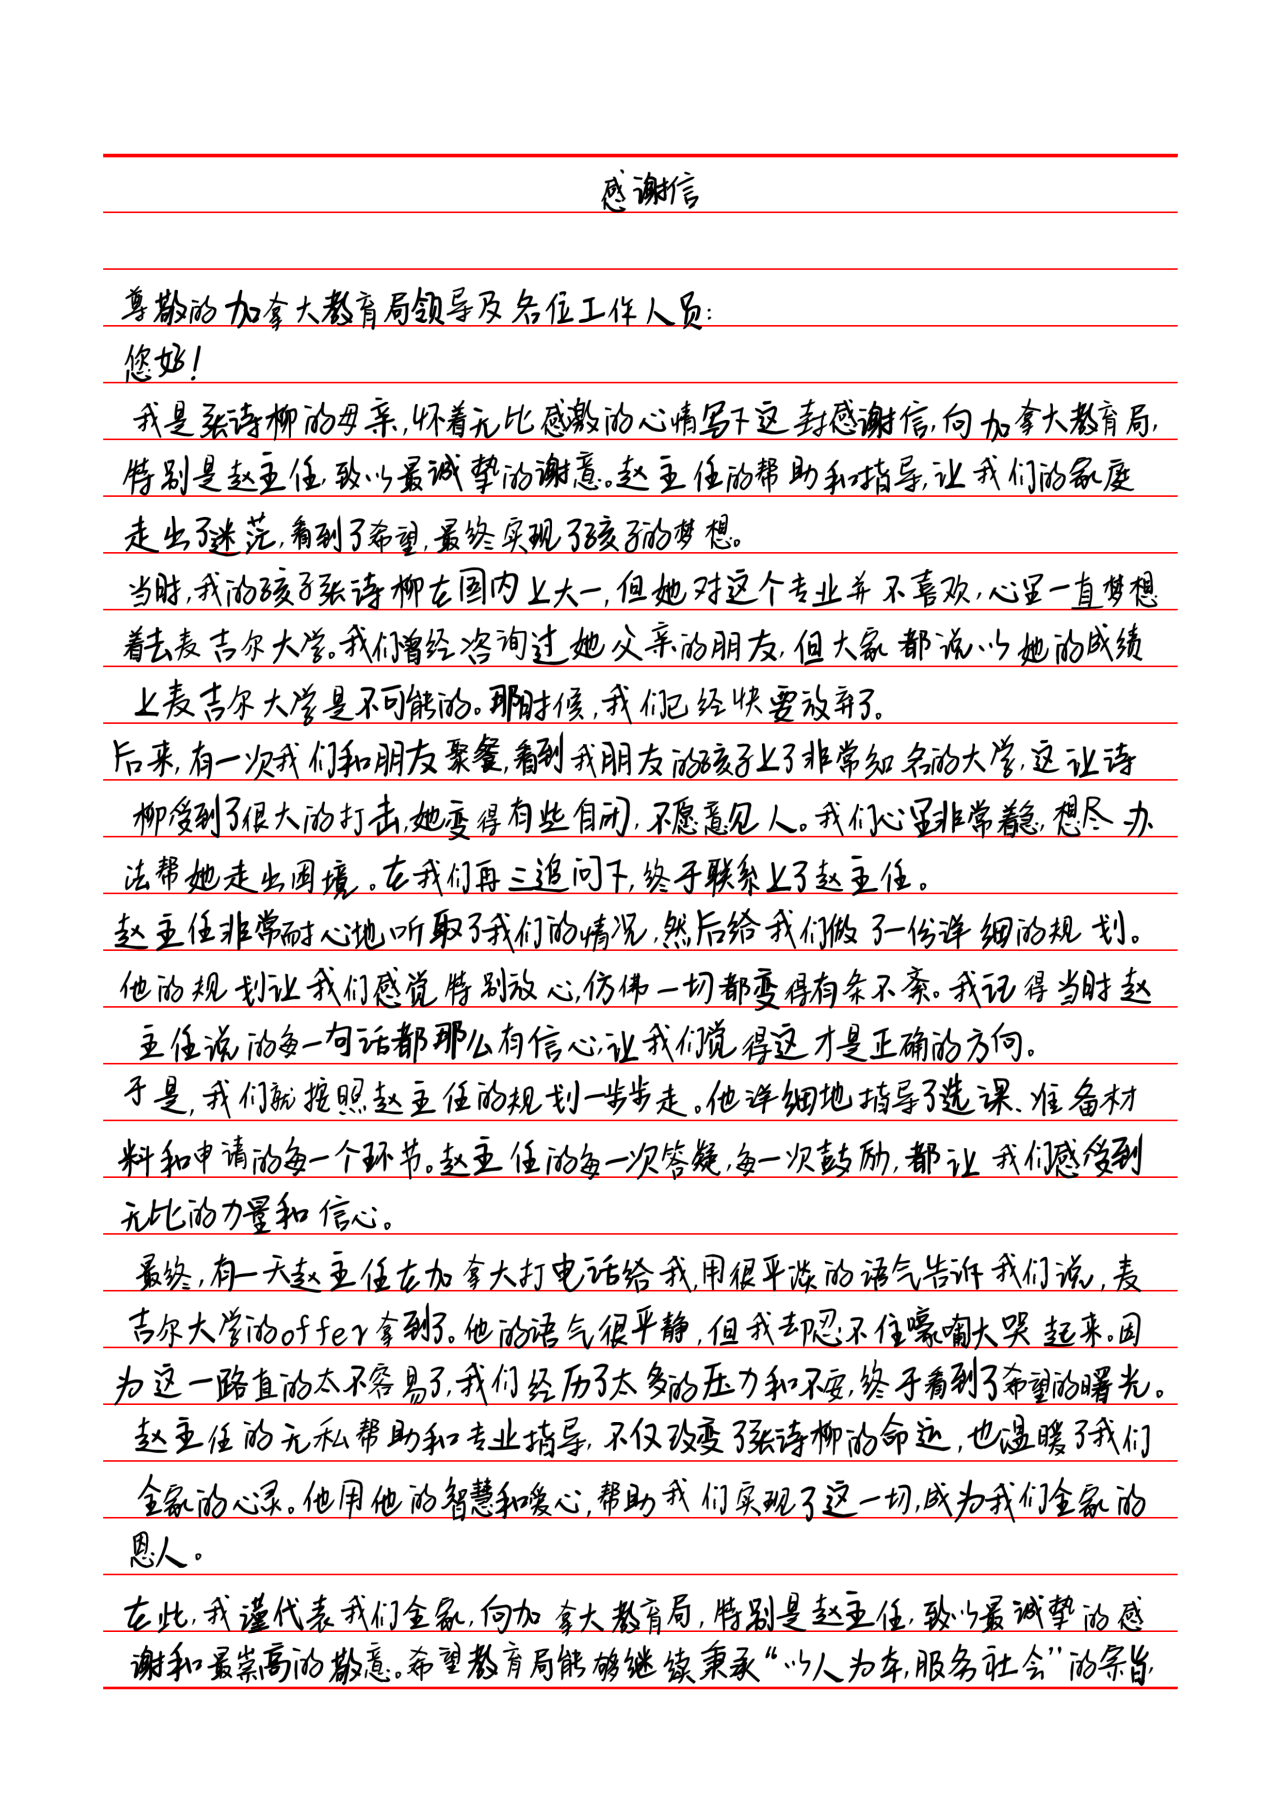 感谢信
尊敬的加拿大教育局领导及各位工作人员：
您好！
我是张诗柳的母亲，怀着无比感激的心情写下这封感谢信，向加拿大教育局，
特别是赵主任，致以最诚挚的谢意。赵主任的帮助和指导，让我们的家庭
走出了迷茫，看到了希望，最终实现了孩子的梦想。
当时，我的孩子张诗柳在国内上大一，但她对这个专业并不喜欢，心里一直梦想
着去麦吉尔大学。我们曾经咨询过她父亲的朋友，但大家都说以她的成绩
上麦吉尔大学是不可能的。那时候，我们已经快要放弃了。
后来，有一次我们和朋友聚餐，看到我朋友的孩子上了非常知名的大学，这让诗
柳受到了很大的打击，她变得有些自闭，不愿意见人。我们心里非常着急，想尽办
法帮她走出困境。在我们再三追问下，终于联系上了赵主任。
赵主任非常耐心地听取了我们的情况，然后给我们做了一份详细的规划。
他的规划让我们感觉特别放心，仿佛一切都变得有条不紊。我记得当时赵
主任说的每一句话都那么有信心，让我们觉得这才是正确的方向。
于是，我们就按照赵主任的规划一步步走。他详细地指导了选课、准备材
料和申请的每一个环节。赵主任的每一次答疑，每一次鼓励，都让我们感受到
无比的力量和信心。
最终，有一天赵主任在加拿大打电话给我，用很平淡的语气告诉我们说，麦
吉尔大学的offer拿到了。他的语气很平静，但我却忍不住嚎啕大哭起来。因
为这一路真的太不容易了，我们经历了太多的压力和不安，终于看到了希望的曙光。
赵主任的无私帮助和专业指导，不仅改变了张诗柳的命运，也温暖了我们
全家的心灵。他用他的智慧和爱心，帮助我们实现了这一切，成为我们全家的
恩人。
在此，我谨代表我们全家，向加拿大教育局，特别是赵主任，致以最诚挚的感
谢和最崇高的敬意。希望教育局能够继续秉承“以人为本，服务社会”的宗旨，